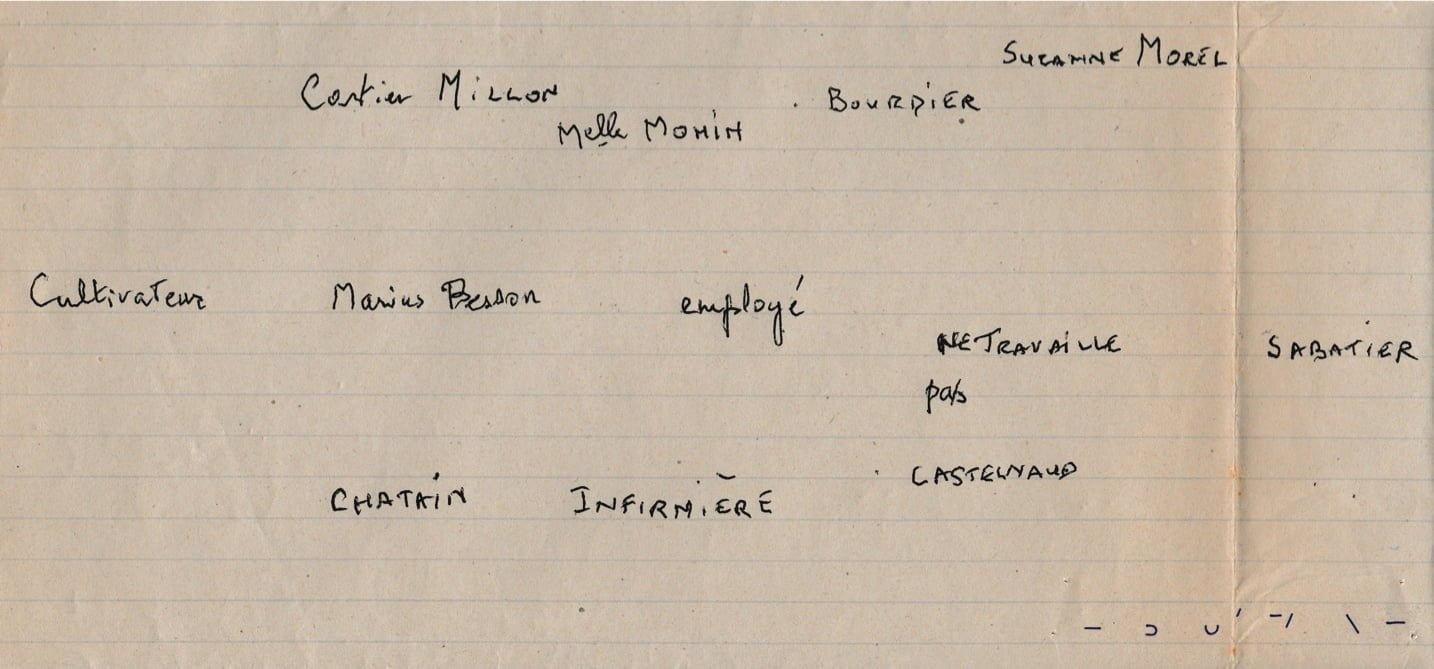 SUZANNE MOREL
Cartier MILLON
BOURDIER
Melle MONIN
Cultivateur
Marius Besson
employé
NE TRAVAILLE
pas
SABATIER
CHATAIN
INFIRMIÈRE
CASTELNAUD